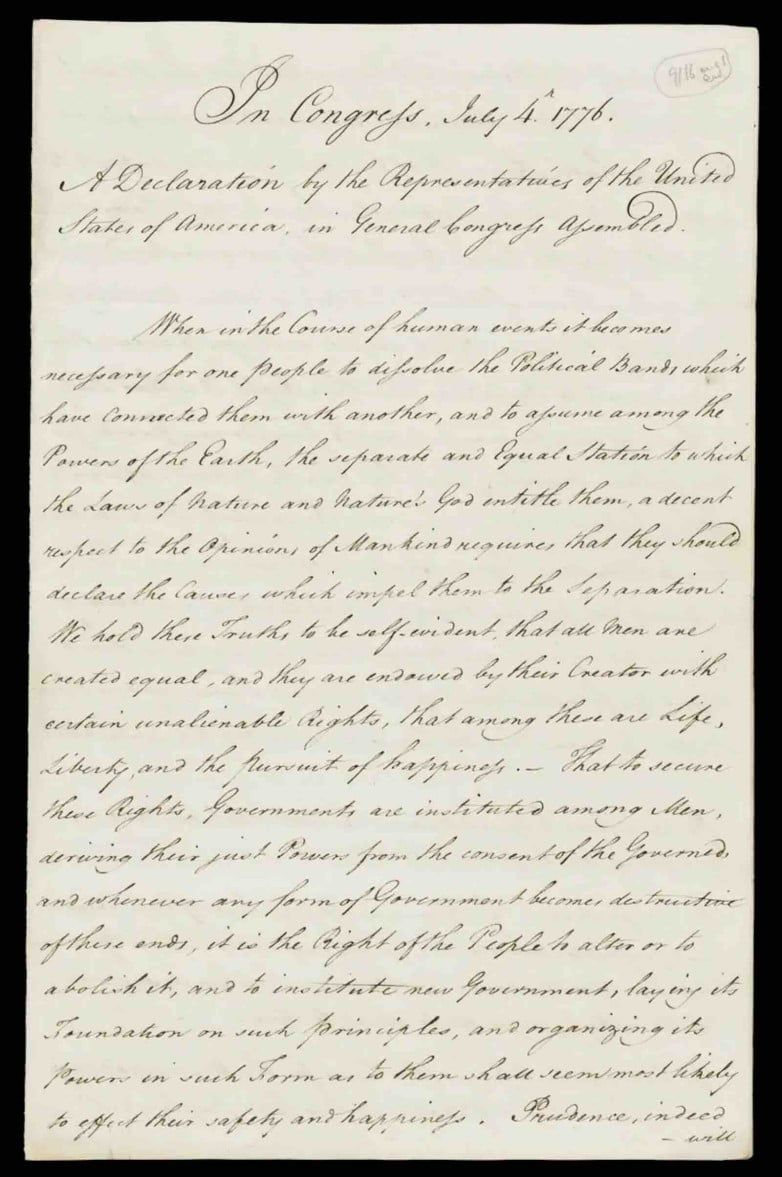 In Congress, July 4th 1776.
A Declaration by the Representatives of the United
States of America, in General Congress Assembled.
When in the Course of human events it becomes
necessary for one People to dissolve the Political Bands which
have connected them with another, and to assume among the
Powers of the Earth, the separate and Equal Station to which
the Laws of Nature and Nature's God entitle them, a decent
respect to the Opinions of Mankind requires that they should
declare the Causes which impel them to the Separation.
We hold these Truths to be self-evident, that all Men are
created equal, and they are endowed by their Creator with
certain unalienable Rights, that among these are Life,
Liberty, and the pursuit of happiness. — That to secure
these Rights, Governments are instituted among Men,
deriving their just Powers from the consent of the Governed,
and whenever any form of Government becomes destructive
of these ends, it is the Right of the People to alter or to
abolish it, and to institute new Government, laying its
Foundation on such principles, and organizing its
Powers in such Form as to them shall seem most likely
to effect their safety and happiness. Prudence, indeed
– will